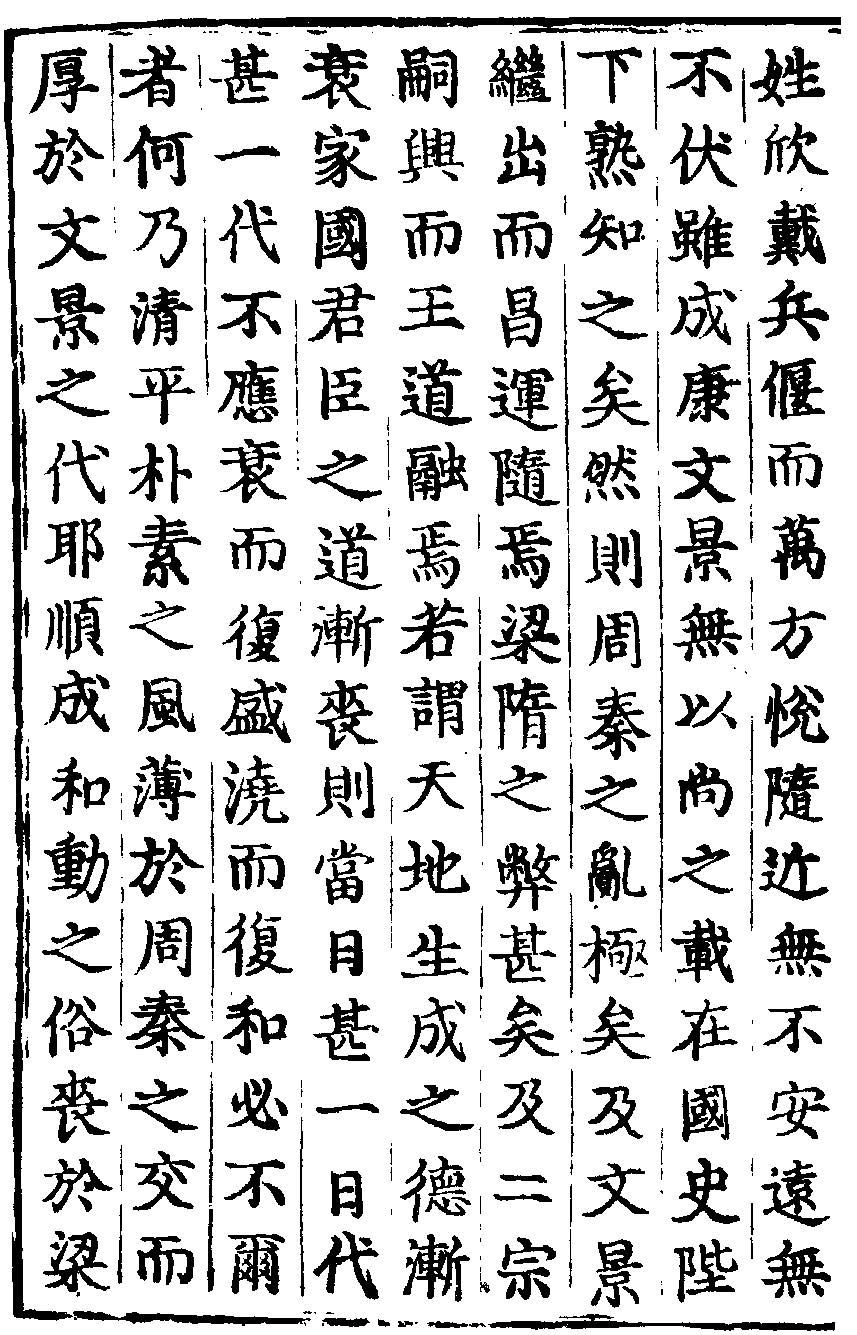 姓欣戴兵偃而萬方悅隨近無不安遠無
不伏雖成康文景無以尚之載在國史陛
下熟知之矣然則周秦之亂極矣及文景
繼出而昌運隨焉梁隋之弊甚矣及二宗
嗣興而王道融焉若謂天地生成之德漸
衰家國君臣之道漸喪則當日甚一日代
甚一代不應衰而復盛澆而復和必不爾
者何乃清平朴素之風薄於周秦之交而
厚於文景之代耶順成和動之俗喪於梁